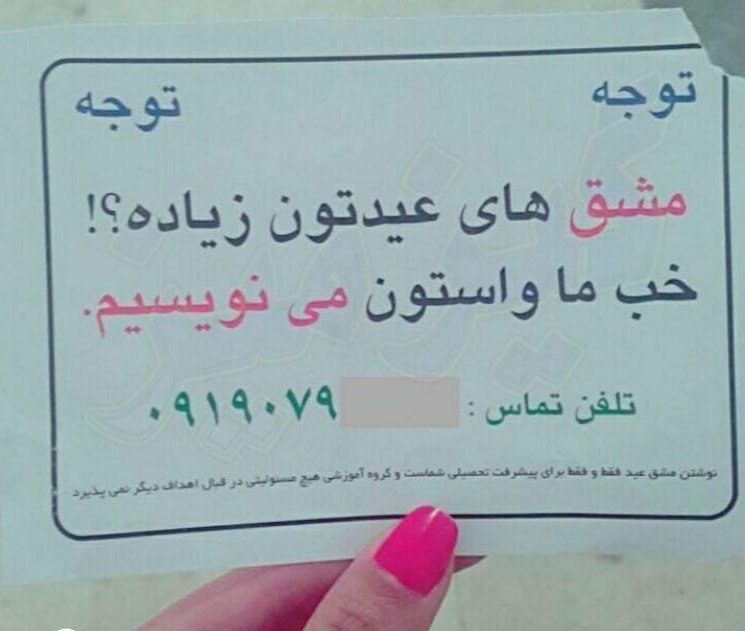 توجه توجه
مشق های عیدتون زیاده؟!
خب ما واستون می نویسیم.
تلفن تماس : ۰۹۱۹۰۷۹
نوشتن مشق عید فقط و فقط برای پیشرفت تحصیلی شماست و گروه آموزشی هیچ مسئولیتی در قبال اهداف دیگر نمی پذیرد